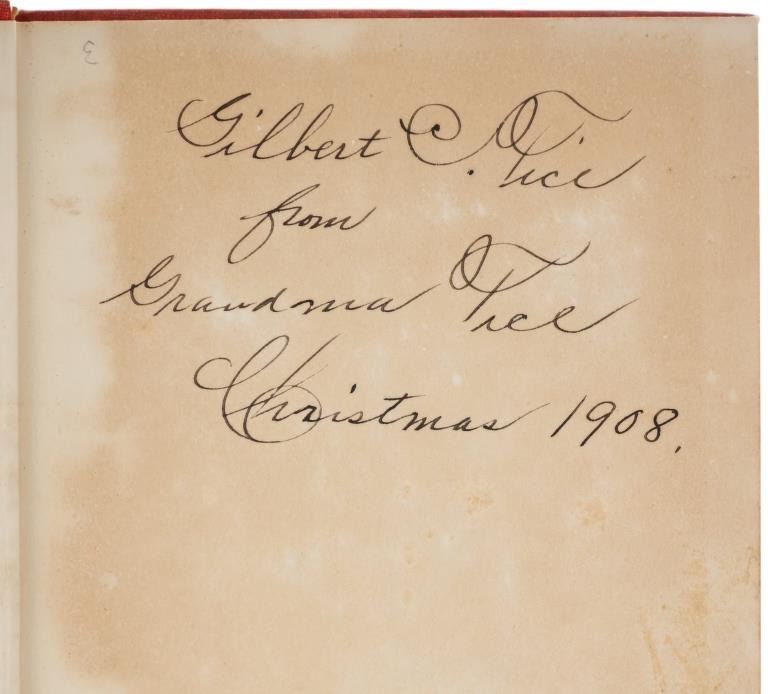 Gilbert C. Tice
from
Grandma Tice
Christmas 1908.